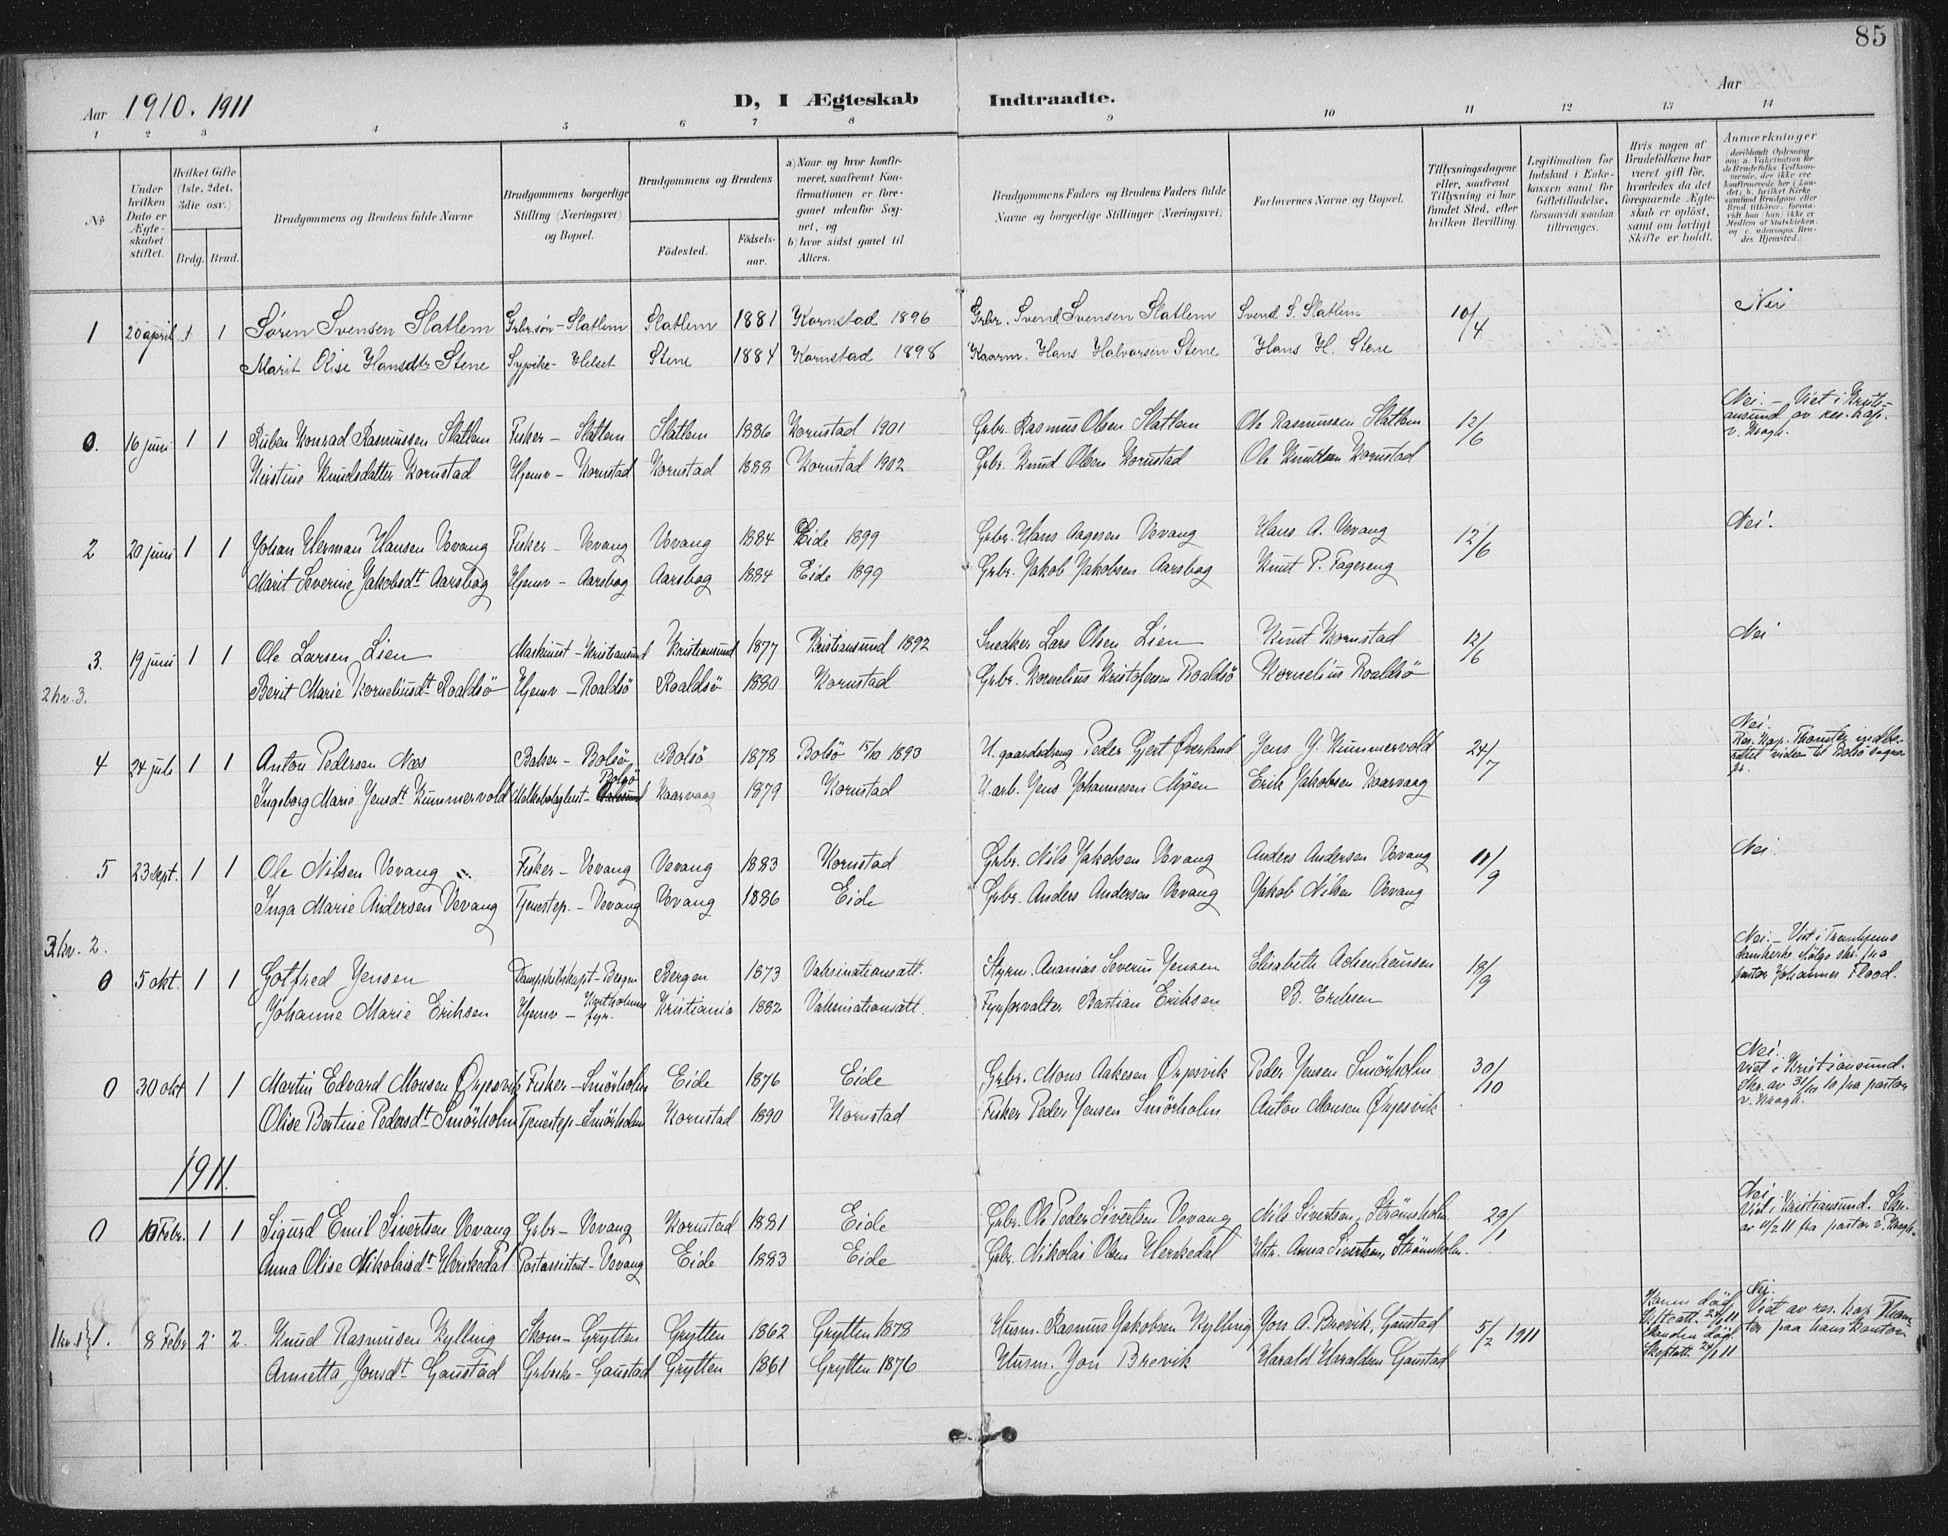 85
Aar 1910. 1911
D, I Ægteskab Indtraadte.
Aar
1 2 3 4 5 6 7 8 9 10 11 12 13 14
No
Under hvilken Dato er Ægteskabet stiftet.
Hvilket Gifte (1ste, 2det, 3die osv.)
Brdg. Brud.
Brudgommens og Brudens fulde Navne
Brudgommens borgerlige Stilling (Næringsvei) og Bopæl.
Brudgommens og Brudens
Fødested.
Fødselsaar.
a) Naar og hvor konfirmeret, saafremt Konfirmationen er foregaaet udenfor Sognet, og
b) hvor sidst gaaet til Alters.
Brudgommens Faders og Brudens Faders fulde Navne og borgerlige Stillinger (Næringsvei)
Forlovernes Navne og Bopæl.
Tillysningsdagene eller, saafremt Tillysning ei har fundet Sted, efter hvilken Bevilling.
Legitimation for Indskud i Enkekassen samt for Giftetilladelse, forsaavidt saadan tiltrænges.
Hvis nogen af Brudefolkene har været gift før, hvorledes da det foregaaende Ægteskab er opløst, samt om lovligt Skifte er holdt.
Anmærkninger
1 20 april 1 1 Søren Svensen Slatlem Grbr.søn - Slatlem Slatlem 1881 Kornstad 1896 Grbr. Svend Svensen Slatlem Svend S. Slatlem 10/4 Nei
Marit Olise Hansdtr Stene Sypike - Helset Stene 1884 Kornstad 1898 Kaarm. Hans Halvorsen Stene Hans H. Stene
0. 16 juni 1 1 Ruben Konrad Rasmussen Slatlem Fisker - Slatlem Slatlem 1886 Kornstad 1901 Grbr. Rasmus Olsen Slatlem Ole Rasmussen Slatlem 12/6 Nei. - Viet i Kristiansund av res. kap. v. Krogh.
Kirstine Knudsdatter Kornstad Hjemv - Kornstad Kornstad 1888 Kornstad 1902 Grbr. Knud Olsen Kornstad Ole Knutsen Kornstad
2 20 juni 1 1 Johan Herman Hansen Vevang Fisker - Vevang Vevang 1884 Eide 1899 Grbr. Hans Aagesen Vevang Hans A. Vevang 12/6 Nei.
Marit Severine Jakobsdt Aarsbog Hjemv - Aarsbog Aarsbog 1884 Eide 1899 Grbr. Jakob Jakobsen Aarsbog Knut P. Fagereng
3. 19 juni 1 1 Ole Larsen Lien Maskinist - Kristiansund Kristiansund 1877 Kristiansund 1892 Snedker Lars Olsen Lien Knut Kornstad 12/6 Nei
2 kv. 3. Berit Marie Korneliusdt Roaldsö Hjemv - Roaldsö Roaldsö 1880 Kornstad Grbr. Kornelius Kristofersen Roaldsö Kornelius Roaldsö
4 24 juli 1 1 Anton Pedersen Næs Baker - Bolsö Bolsö 1878 Bolsö 15/10 1893 U. gaardsdreng Peder Gjert Överland Jens J. Kummervold 24/7 Nei.
Ingeborg Marie Jensdt Kummervold Bolsö Kaarvaag 1879 Kornstad U. arb. Jens Johannesen Mjöen Erik Jakobsen Kaarvaag
5 23 sept. 1 1 Ole Nilsen Vevang Fisker - Vevang Vevang 1883 Kornstad Grbr. Nils Jakobsen Vevang Anders Andersen Vevang 11/9 Nei.
Inga Marie Andersen Vevang Tjenestep. - Vevang Vevang 1886 Eide Grbr. Anders Andersen Vevang Jakob Nilsen Vevang
3 kv. 2.
0 5 okt. 1 1 Gotfred Jensen Bergen Bergen 1873 Vaksinationsatt. Styrm. Ananias Severin Jensen Elisabeth 18/9 Nei. - Viet i Trondhjems domkirke, ifölge skr. fra pastor Johannes Flood.
Johanne Marie Eriksen Hjemv - Kvitholmens fyr. Kristiania 1882 Vaksinationsatt. Fyrforvalter Bastian Eriksen B. Eriksen
0 30 okt 1 1 Martin Edvard Monsen Ørjasvik Fisker - Smörholm Eide 1876 Eide Grbr. Mons Aakesen Ørjasvik Peder Jensen Smörholm 30/10 Nei. viet i Kristiansund. Skr. av 31/10 10 fra pastor v. Krogh.
Olise Bertine Pedersdt Smörholm Tjenestep - Smörholm Kornstad 1890 Kornstad Fisker Peder Jensen Smörholm Anton Monsen Ørjasvik
1911.
0 10 Febr. 1 1 Sigurd Emil Sivertsen Vevang Grbr - Vevang Kornstad 1881 Eide Grbr. Ole Peder Sivertsen Vevang Nils Sivertsen, Strömsholm. 29/1 Nei. Viet i Kristiansund. Skr. av 11/2 11 fra pastor v. Krogh.
Anna Olise Nikolaisdt Herskedal Postassistent - Vevang Eide 1883 Eide Grbr. Nikolai Olsen Herskedal Hstr. Anna Sivertsen, Strömsholm.
1 kv. 1 1. 8 Febr 2. 2. Knud Rasmusen Kylling Skom - Grytten Grytten 1862 Grytten 1878 Husm. Rasmus Jakobsen Kylling Jon A. Brevik, Gaustad 5/2 1911 Konen död Skifteatt. 24/1 11 Manden död Skifteatt. 24/1 11 Nei. Viet av res. kap. Thomter paa hans kontor.
Annetta Jonsdt Gaustad Grbrske - Gaustad Grytten 1861 Grytten 1876 Husm. Jon Brevik Harald Haraldsen Gaustad